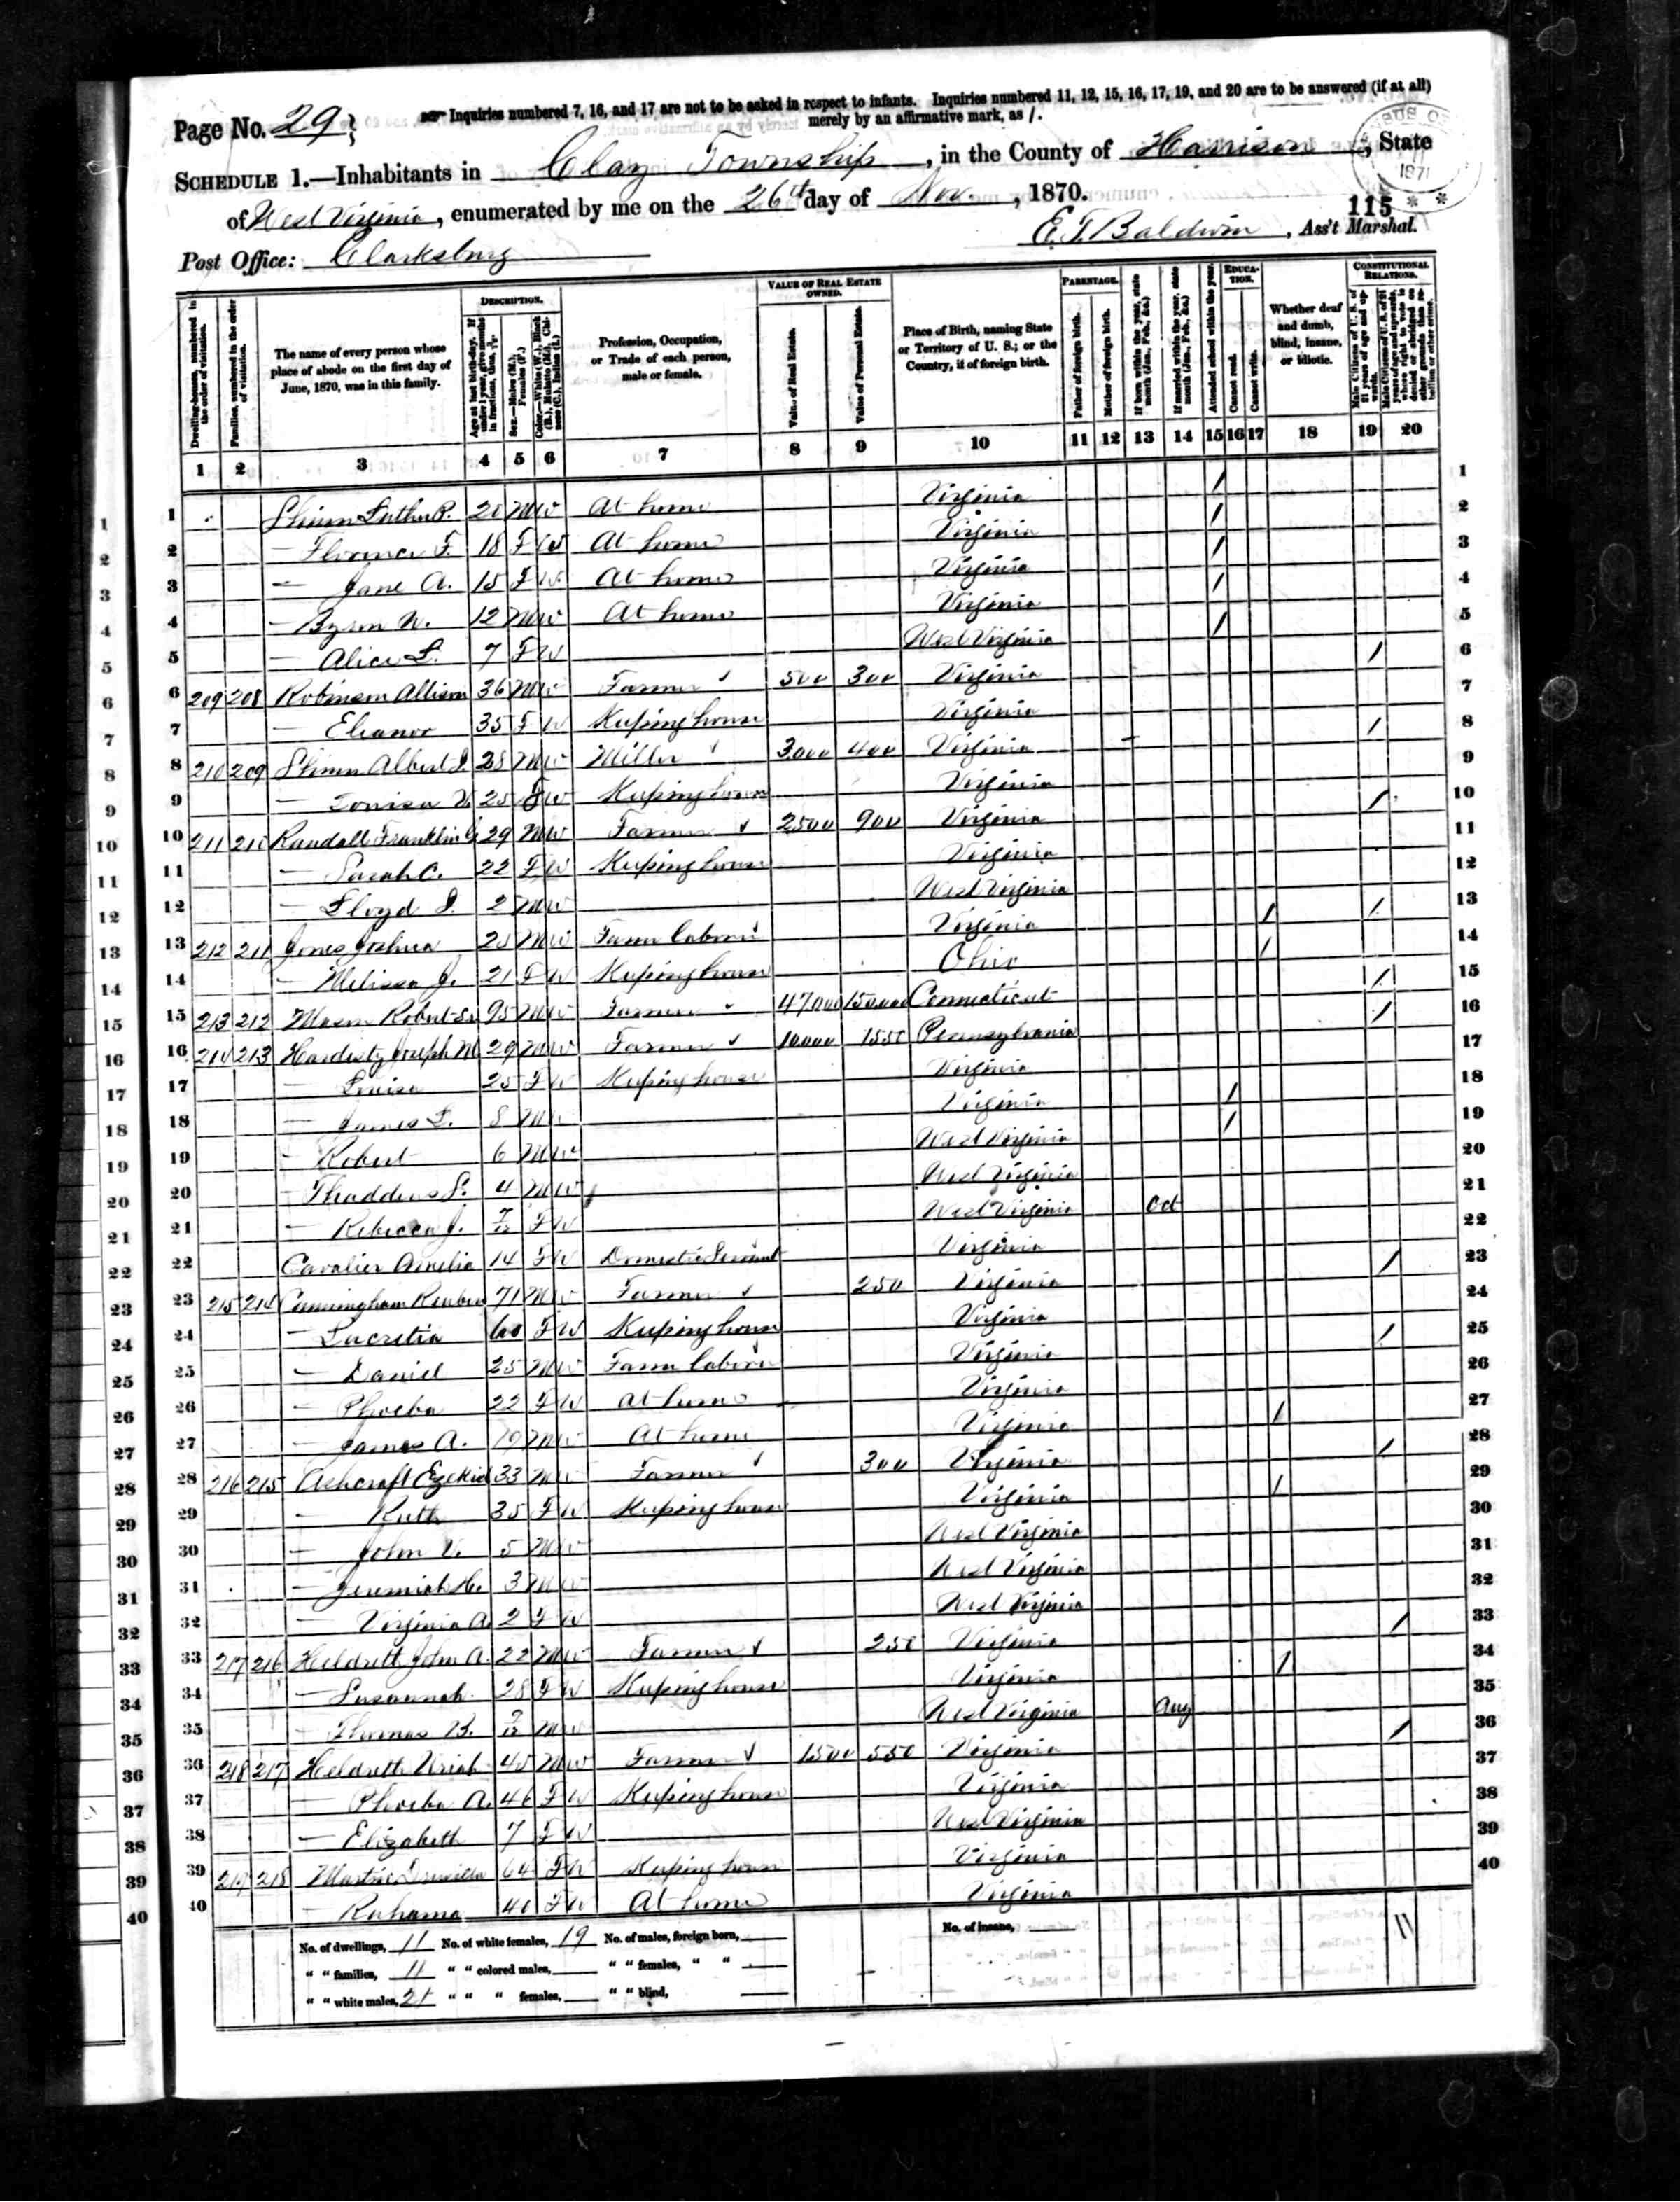 Page No. 29
Inquiries numbered 7, 16, and 17 are not to be asked in respect to infants. Inquiries numbered 11, 12, 15, 16, 17, 19, and 20 are to be answered (if at all)
merely by an affirmative mark, as /.
SCHEDULE 1.—Inhabitants in Clay Township, in the County of Harrison, State
of West Virginia, enumerated by me on the 26th day of Nov., 1870.
115
Post Office: Clarksburg
E. T. Baldwin, Ass't Marshal.
1871
DESCRIPTION. VALUE OF REAL ESTATE OWNED. PARENTAGE. EDUCATION. CONSTITUTIONAL RELATIONS.
Dwelling-houses, numbered in the order of visitation.
Families, numbered in the order of visitation.
The name of every person whose place of abode on the first day of June, 1870, was in this family.
Age at last birth-day. If under 1 year, give months in fractions, thus,
Sex.—Males (M.), Females (F.)
Color.—White (W.), Black (B.), Mulatto (M.), Chinese (C.), Indian (I.)
Profession, Occupation, or Trade of each person, male or female.
Value of Real Estate.
Value of Personal Estate.
Place of Birth, naming State or Territory of U. S.; or the Country, if of foreign birth.
Father of foreign birth.
Mother of foreign birth.
If born within the year, state month (Jan., Feb., &c.)
If married within the year, state month (Jan., Feb., &c.)
Attended school within the year.
Cannot read.
Cannot write.
Whether deaf and dumb, blind, insane, or idiotic.
Male Citizens of U. S. of 21 years of age and upwards.
Male Citizens of U. S. of 21 years of age and upwards, where right to vote is denied or abridged on other grounds than rebellion or other crime.
1 2 3 4 5 6 7 8 9 10 11 12 13 14 15 16 17 18 19 20
1 Shinn Luther P. 20 M W At home Virginia / 1
2 — Florence F. 18 F W At home Virginia / 2
3 — Jane A. 15 F W At home Virginia / 3
4 — Byron W. 12 M W At home Virginia / 4
5 — Alice L. 7 F W West Virginia / 5
6 209 208 Robinson Allison 36 M W Farmer 500 300 Virginia / 6
7 — Eleanor 35 F W Keeping house Virginia 7
8 210 209 Shinn Albert J. 28 M W Miller 3000 400 Virginia / 8
9 — Louisa V. 25 F W Keeping house Virginia 9
10 211 210 Randall Franklin G 29 M W Farmer 2500 900 Virginia / 10
11 — Sarah C. 22 F W Keeping house Virginia 11
12 — Floyd J. 2 M W West Virginia 12
13 212 211 Jones Joshua 25 M W Farm laborer Virginia / / 13
14 — Melissa J. 21 F W Keeping house Ohio / 14
15 213 212 Mason Robert Sr 95 M W Farmer 47000 150000 Connecticut / 15
16 214 213 Hardesty Joseph M 29 M W Farmer 10000 1550 Pennsylvania / 16
17 — Louisa 25 F W Keeping house Virginia 17
18 — James L. 8 M W Virginia / 18
19 — Robert 6 M W West Virginia / 19
20 — Thaddeus S. 4 M W West Virginia 20
21 — Rebecca J. 7/12 F W West Virginia Oct 21
22 Cavalier Amelia 14 F W Domestic Servant Virginia 22
23 215 214 Cunningham Reuben 71 M W Farmer 250 Virginia / 23
24 — Lucretia 60 F W Keeping house Virginia 24
25 — Daniel 25 M W Farm laborer Virginia / 25
26 — Phoeba 22 F W At home Virginia 26
27 — James A. 19 M W At home Virginia / 27
28 216 215 Ashcraft Ezekiel 33 M W Farmer 300 Virginia / 28
29 — Ruth 35 F W Keeping house Virginia / 29
30 — John V. 5 M W West Virginia 30
31 — Jeremiah H. 3 M W West Virginia 31
32 — Virginia A. 2 F W West Virginia 32
33 217 216 Heldreth John A. 22 M W Farmer 250 Virginia / 33
34 — Susannah 28 F W Keeping house Virginia / 34
35 — Thomas B. M W West Virginia Aug 35
36 218 217 Heldreth Uriah 45 M W Farmer 1500 550 Virginia / 36
37 — Phoeba A. 46 F W Keeping house Virginia 37
38 — Elizabeth 7 F W West Virginia 38
39 219 218 Martin Drusilla 64 F W Keeping house Virginia 39
40 — Ruhama 40 F W At home Virginia 40
No. of dwellings, 11 No. of white females, 19 No. of males, foreign born, No. of insane, 11
" " families, 11 " " colored males, " " females, " "
" " white males, 21 " " " females, " " blind,